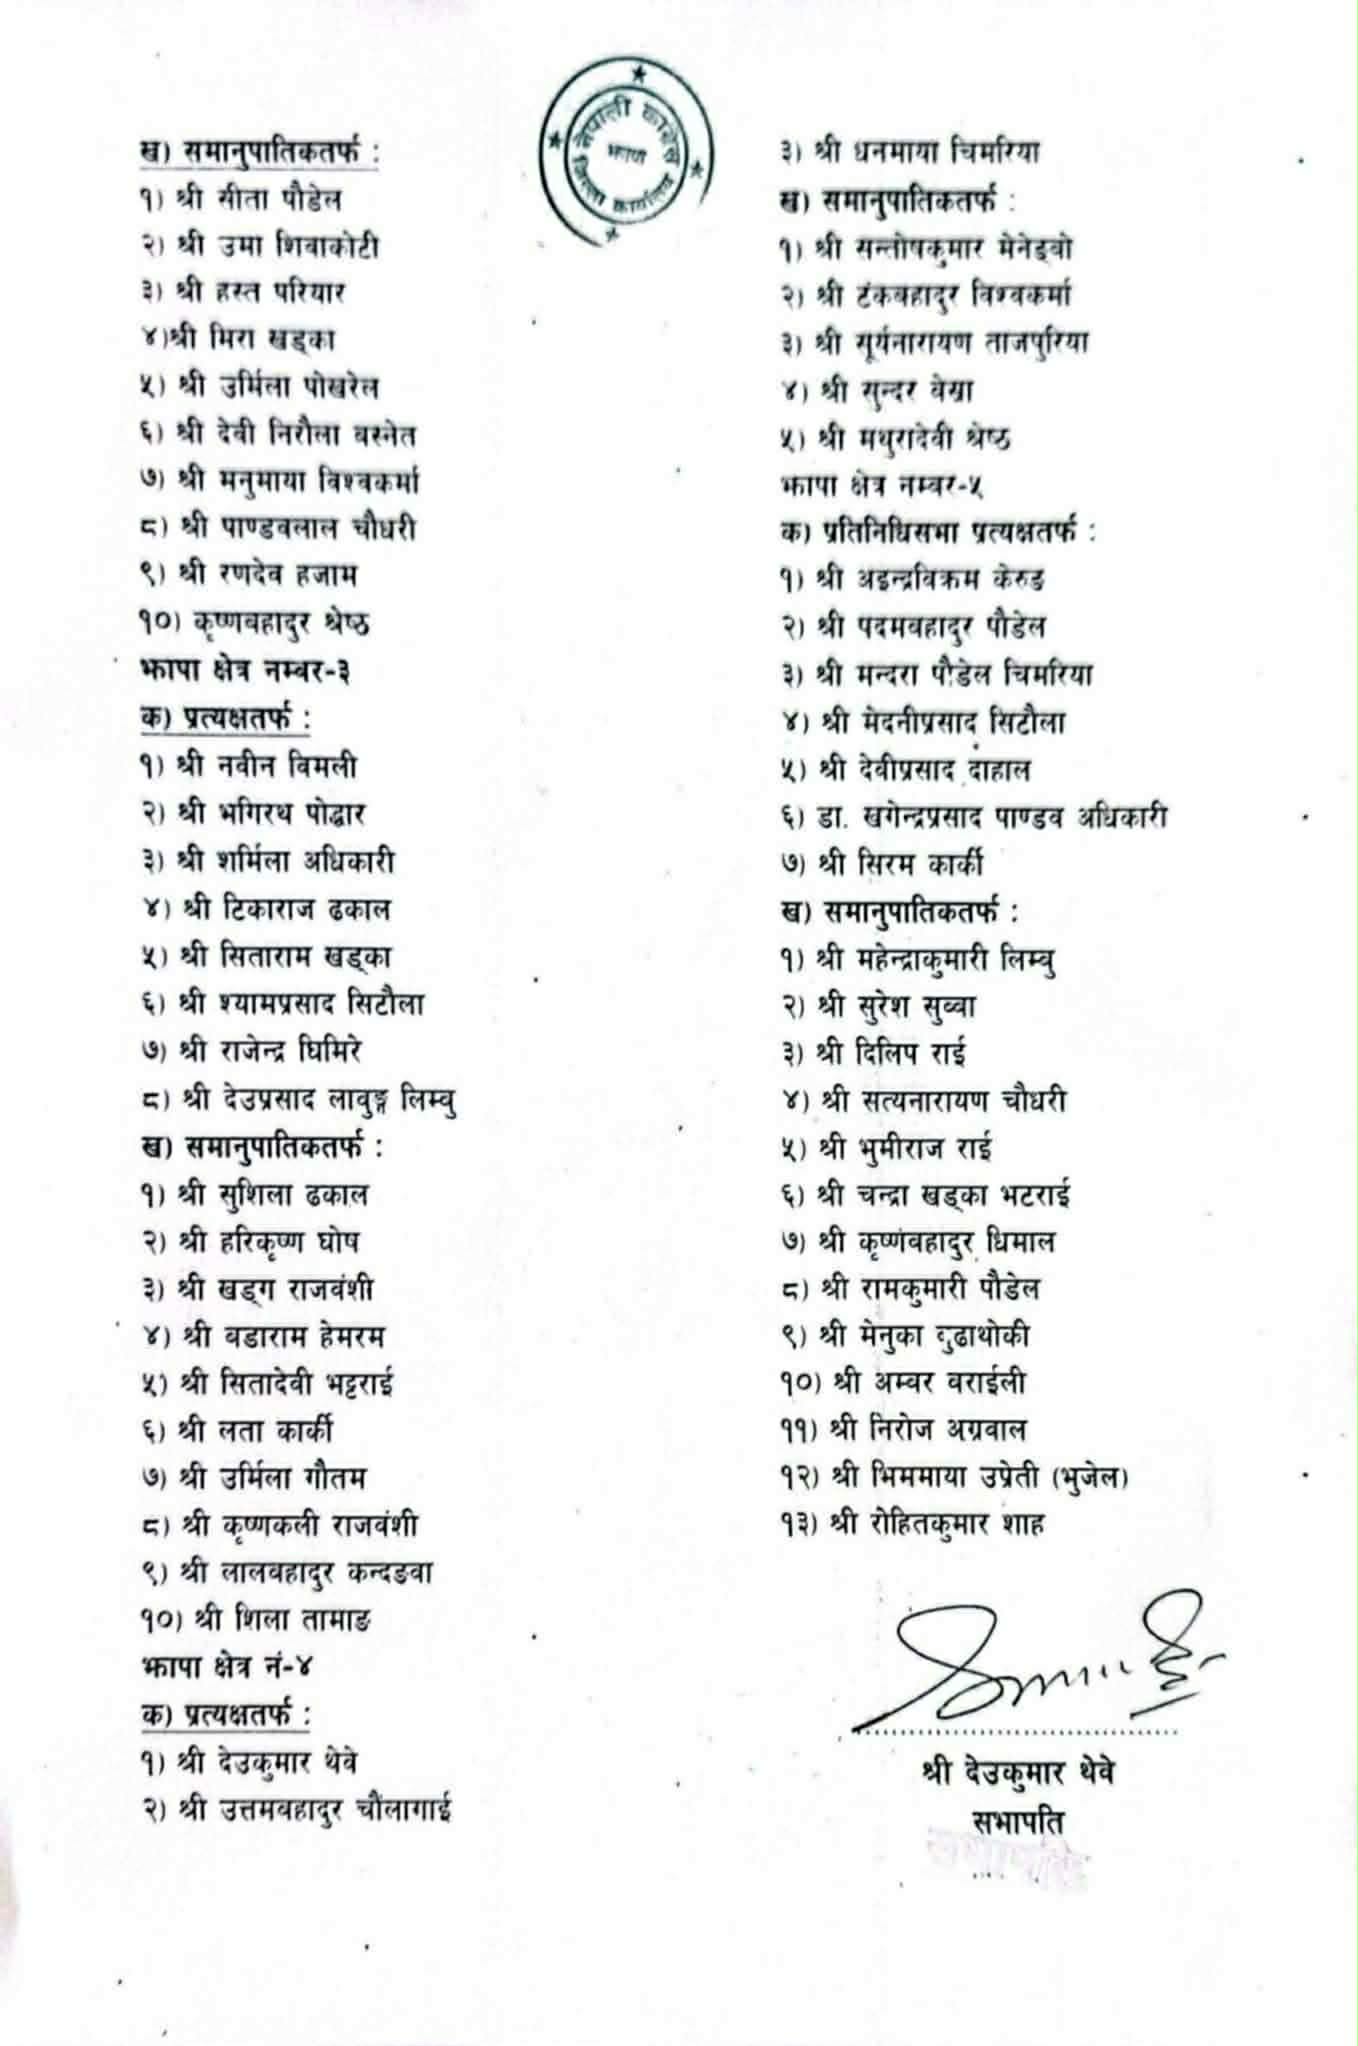 नेपाली कांग्रेस
झापा
जिल्ला कार्यालय
ख) समानुपातिकतर्फ :
१) श्री सीता पौडेल
२) श्री उमा शिवाकोटी
३) श्री हस्त परियार
४)श्री मिरा खड्का
५) श्री उर्मिला पोखरेल
६) श्री देवी निरौला वस्नेत
७) श्री मनुमाया विश्वकर्मा
८) श्री पाण्डवलाल चौधरी
९) श्री रणदेव हजाम
१०) कृष्णबहादुर श्रेष्ठ
झापा क्षेत्र नम्बर-३
क) प्रत्यक्षतर्फ :
१) श्री नवीन विमली
२) श्री भगिरथ पोद्धार
३) श्री शर्मिला अधिकारी
४) श्री टिकाराज ढकाल
५) श्री सिताराम खड्का
६) श्री श्यामप्रसाद सिटौला
७) श्री राजेन्द्र घिमिरे
८) श्री देउप्रसाद लावुङ्ग लिम्वु
ख) समानुपातिकतर्फ :
१) श्री सुशिला ढकाल
२) श्री हरिकृष्ण घोष
३) श्री खड्ग राजवंशी
४) श्री वडाराम हेमरम
५) श्री सितादेवी भट्टराई
६) श्री लता कार्की
७) श्री उर्मिला गौतम
८) श्री कृष्णकली राजवंशी
९) श्री लालबहादुर कन्दङवा
१०) श्री शिला तामाङ
झापा क्षेत्र नं-४
क) प्रत्यक्षतर्फ :
१) श्री देउकुमार थेवे
२) श्री उत्तमबहादुर चौंलागाई
३) श्री धनमाया चिमरिया
ख) समानुपातिकतर्फ :
१) श्री सन्तोषकुमार मेनेङ्वो
२) श्री टंकबहादुर विश्वकर्मा
३) श्री सूर्यनारायण ताजपुरिया
४) श्री सुन्दर वेग्रा
५) श्री मथुरादेवी श्रेष्ठ
झापा क्षेत्र नम्बर-५
क) प्रतिनिधिसभा प्रत्यक्षतर्फ :
१) श्री अइन्द्रविक्रम केरुङ
२) श्री पदमबहादुर पौडेल
३) श्री मन्दरा पौडेल चिमरिया
४) श्री मेदनीप्रसाद सिटौला
५) श्री देवीप्रसाद दाहाल
६) डा. खगेन्द्रप्रसाद पाण्डव अधिकारी
७) श्री सिरम कार्की
ख) समानुपातिकतर्फ :
१) श्री महेन्द्राकुमारी लिम्वु
२) श्री सुरेश सुव्वा
३) श्री दिलिप राई
४) श्री सत्यनारायण चौधरी
५) श्री भुमीराज राई
६) श्री चन्द्रा खड्का भटराई
७) श्री कृष्णबहादुर धिमाल
८) श्री रामकुमारी पौडेल
९) श्री मेनुका वुढाथोकी
१०) श्री अम्वर वराईली
११) श्री निरोज अग्रवाल
१२) श्री भिममाया उप्रेती (भुजेल)
१३) श्री रोहितकुमार शाह
श्री देउकुमार थेवे
सभापति
सभापति